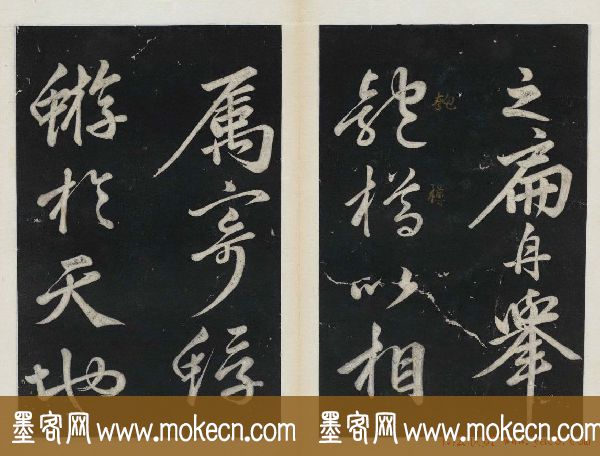 之扁舟舉
匏樽以相
匏
樽
属寄蜉
蝣於天地
墨客网 www.mokecn.com 墨客网 www.mokecn.com